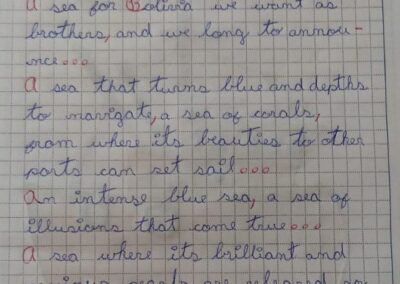 a sea for Bolivia we want as
brothers, and we long to announ-
nce...
a sea that turns blue and depths
to navigate, a sea of corals,
from where its beauties to other
ports can set sail...
an intense blue sea, a sea of
illusions that come true...
a sea where its brilliant and
pearls are